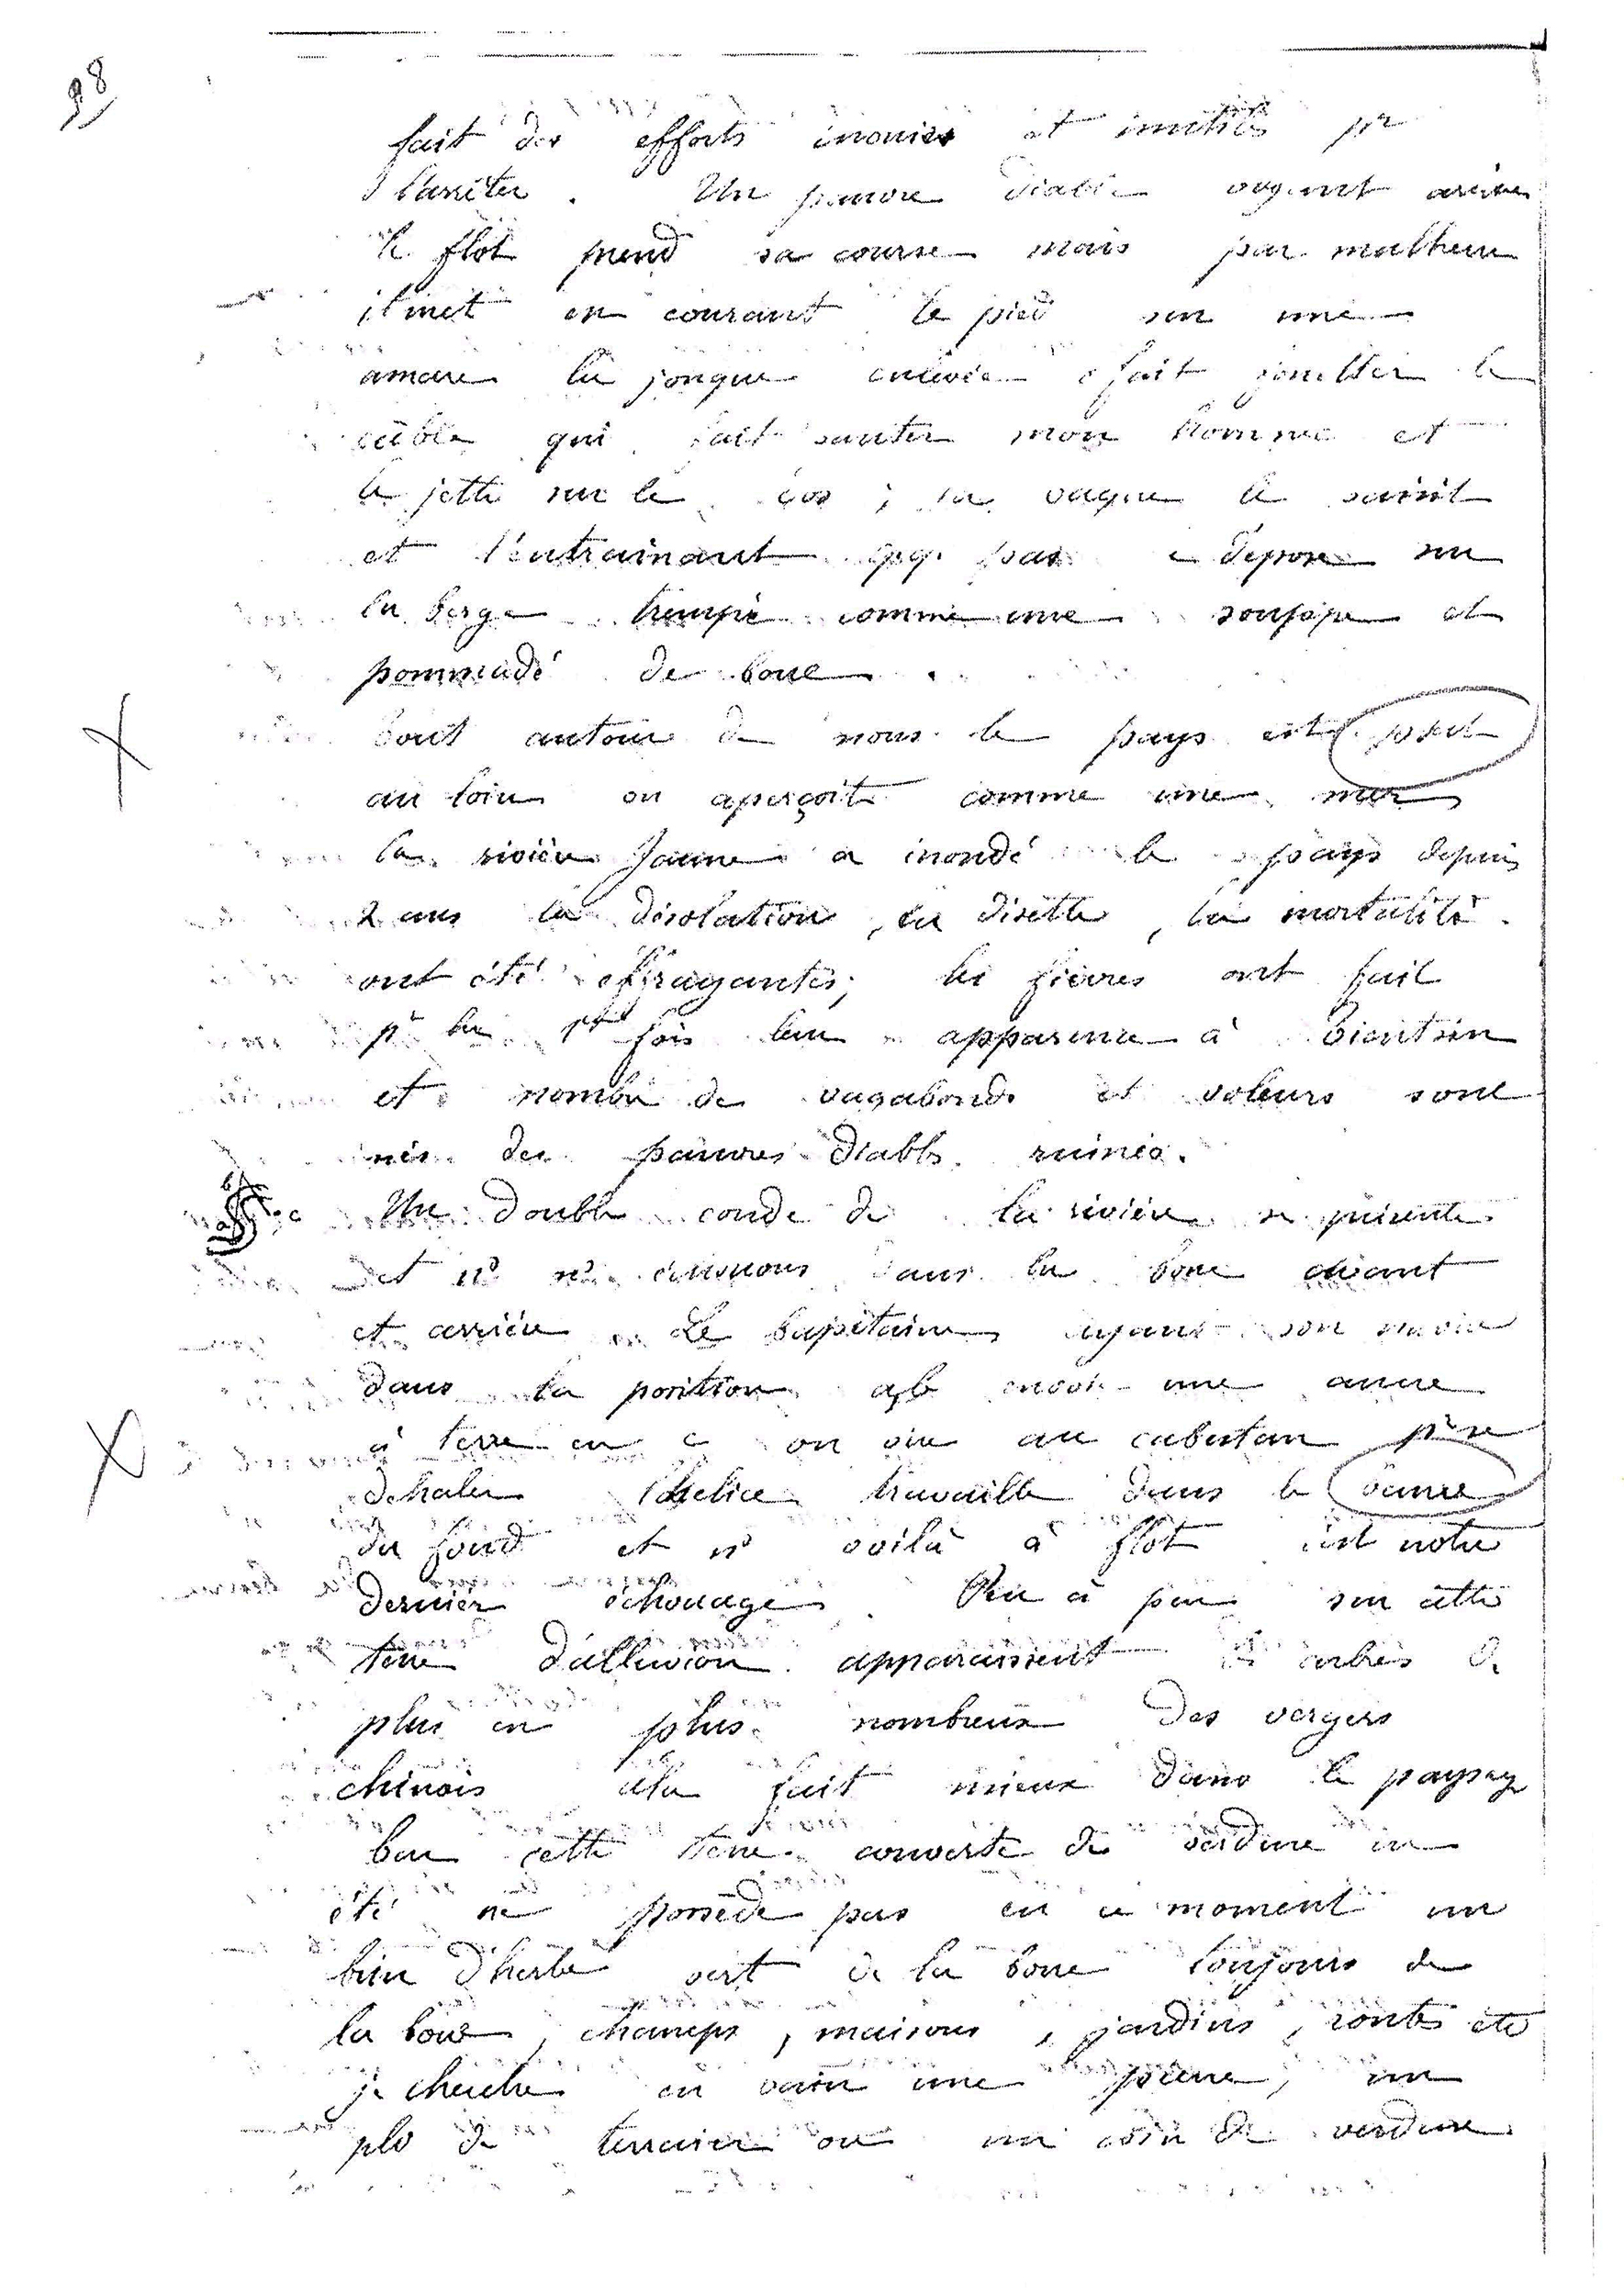 98
fait des efforts inouïes et inutiles pr
l'arrêter. Un pauvre diable voyant arriver
le flot prend sa course mais par malheur
il met en courant le pied sur une
amare la jonque enlevée fait le
câble qui fait sauter mon homme et
le jette sur le dos ; la vague le saisit
et l'entrainant qq. pas le dépose sur
la berge trempé comme une souppe et
pommadé de boue.
tout autour de nous le pays est
au loin on aperçoit comme une mer
la rivière Jaune a inondé le pays depuis
2 ans la désolation, la disette, la mortalité
ont été effrayantes; les fièvres ont fait
pr la 1ère fois leur apparence à Tientsin
et nombre de vagabonds et voleurs sont
nés des pauvres diables ruinés.
Un double coude de la rivière se présente
et ns ns échouons dans la boue avant
et arrière Le Capitaine ayant son navire
dans la position a b envoie une ancre
à terre en c on vire au cabestan pr se
déhaler l'hélice travaille dans la
du fond et ns voilà à flot c'est notre
dernier échouage. Peu à peu sur cette
terre d'alluvion apparaissent les arbres de
plus en plus nombreux des vergers
chinois cela fait mieux dans le paysage
car cette terre couverte de verdure en
été ne possède pas en ce moment un
brin d'herbe vert de la boue toujours de
la boue, champs, maisons, jardins, routes etc
je cherche en vain une pierre, un
pli de terrain ou un coin de verdure